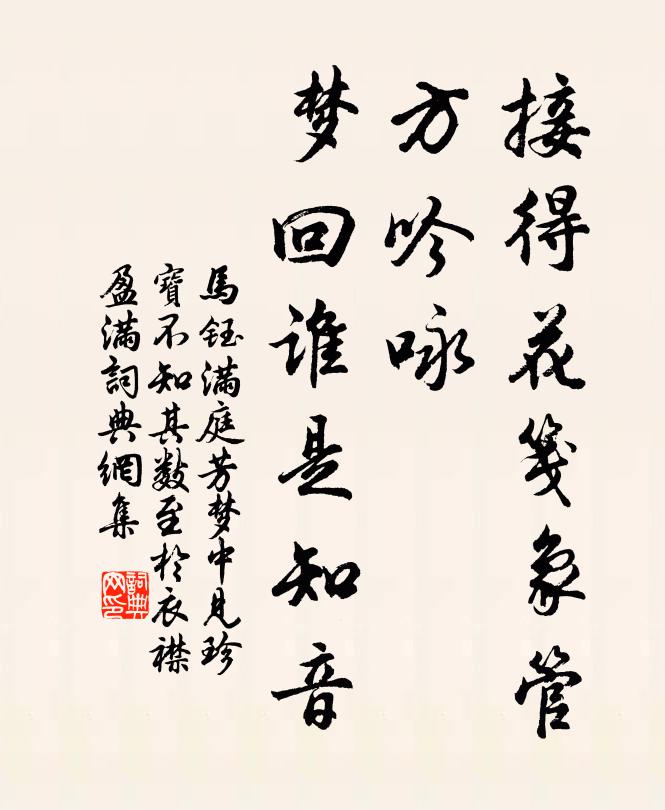 接得花笺象管
方吟咏
梦回谁是知音
馬鈺满庭芳梦中見珍
寶不知其数至於衣襟
盈满詞典網集
詞典网印